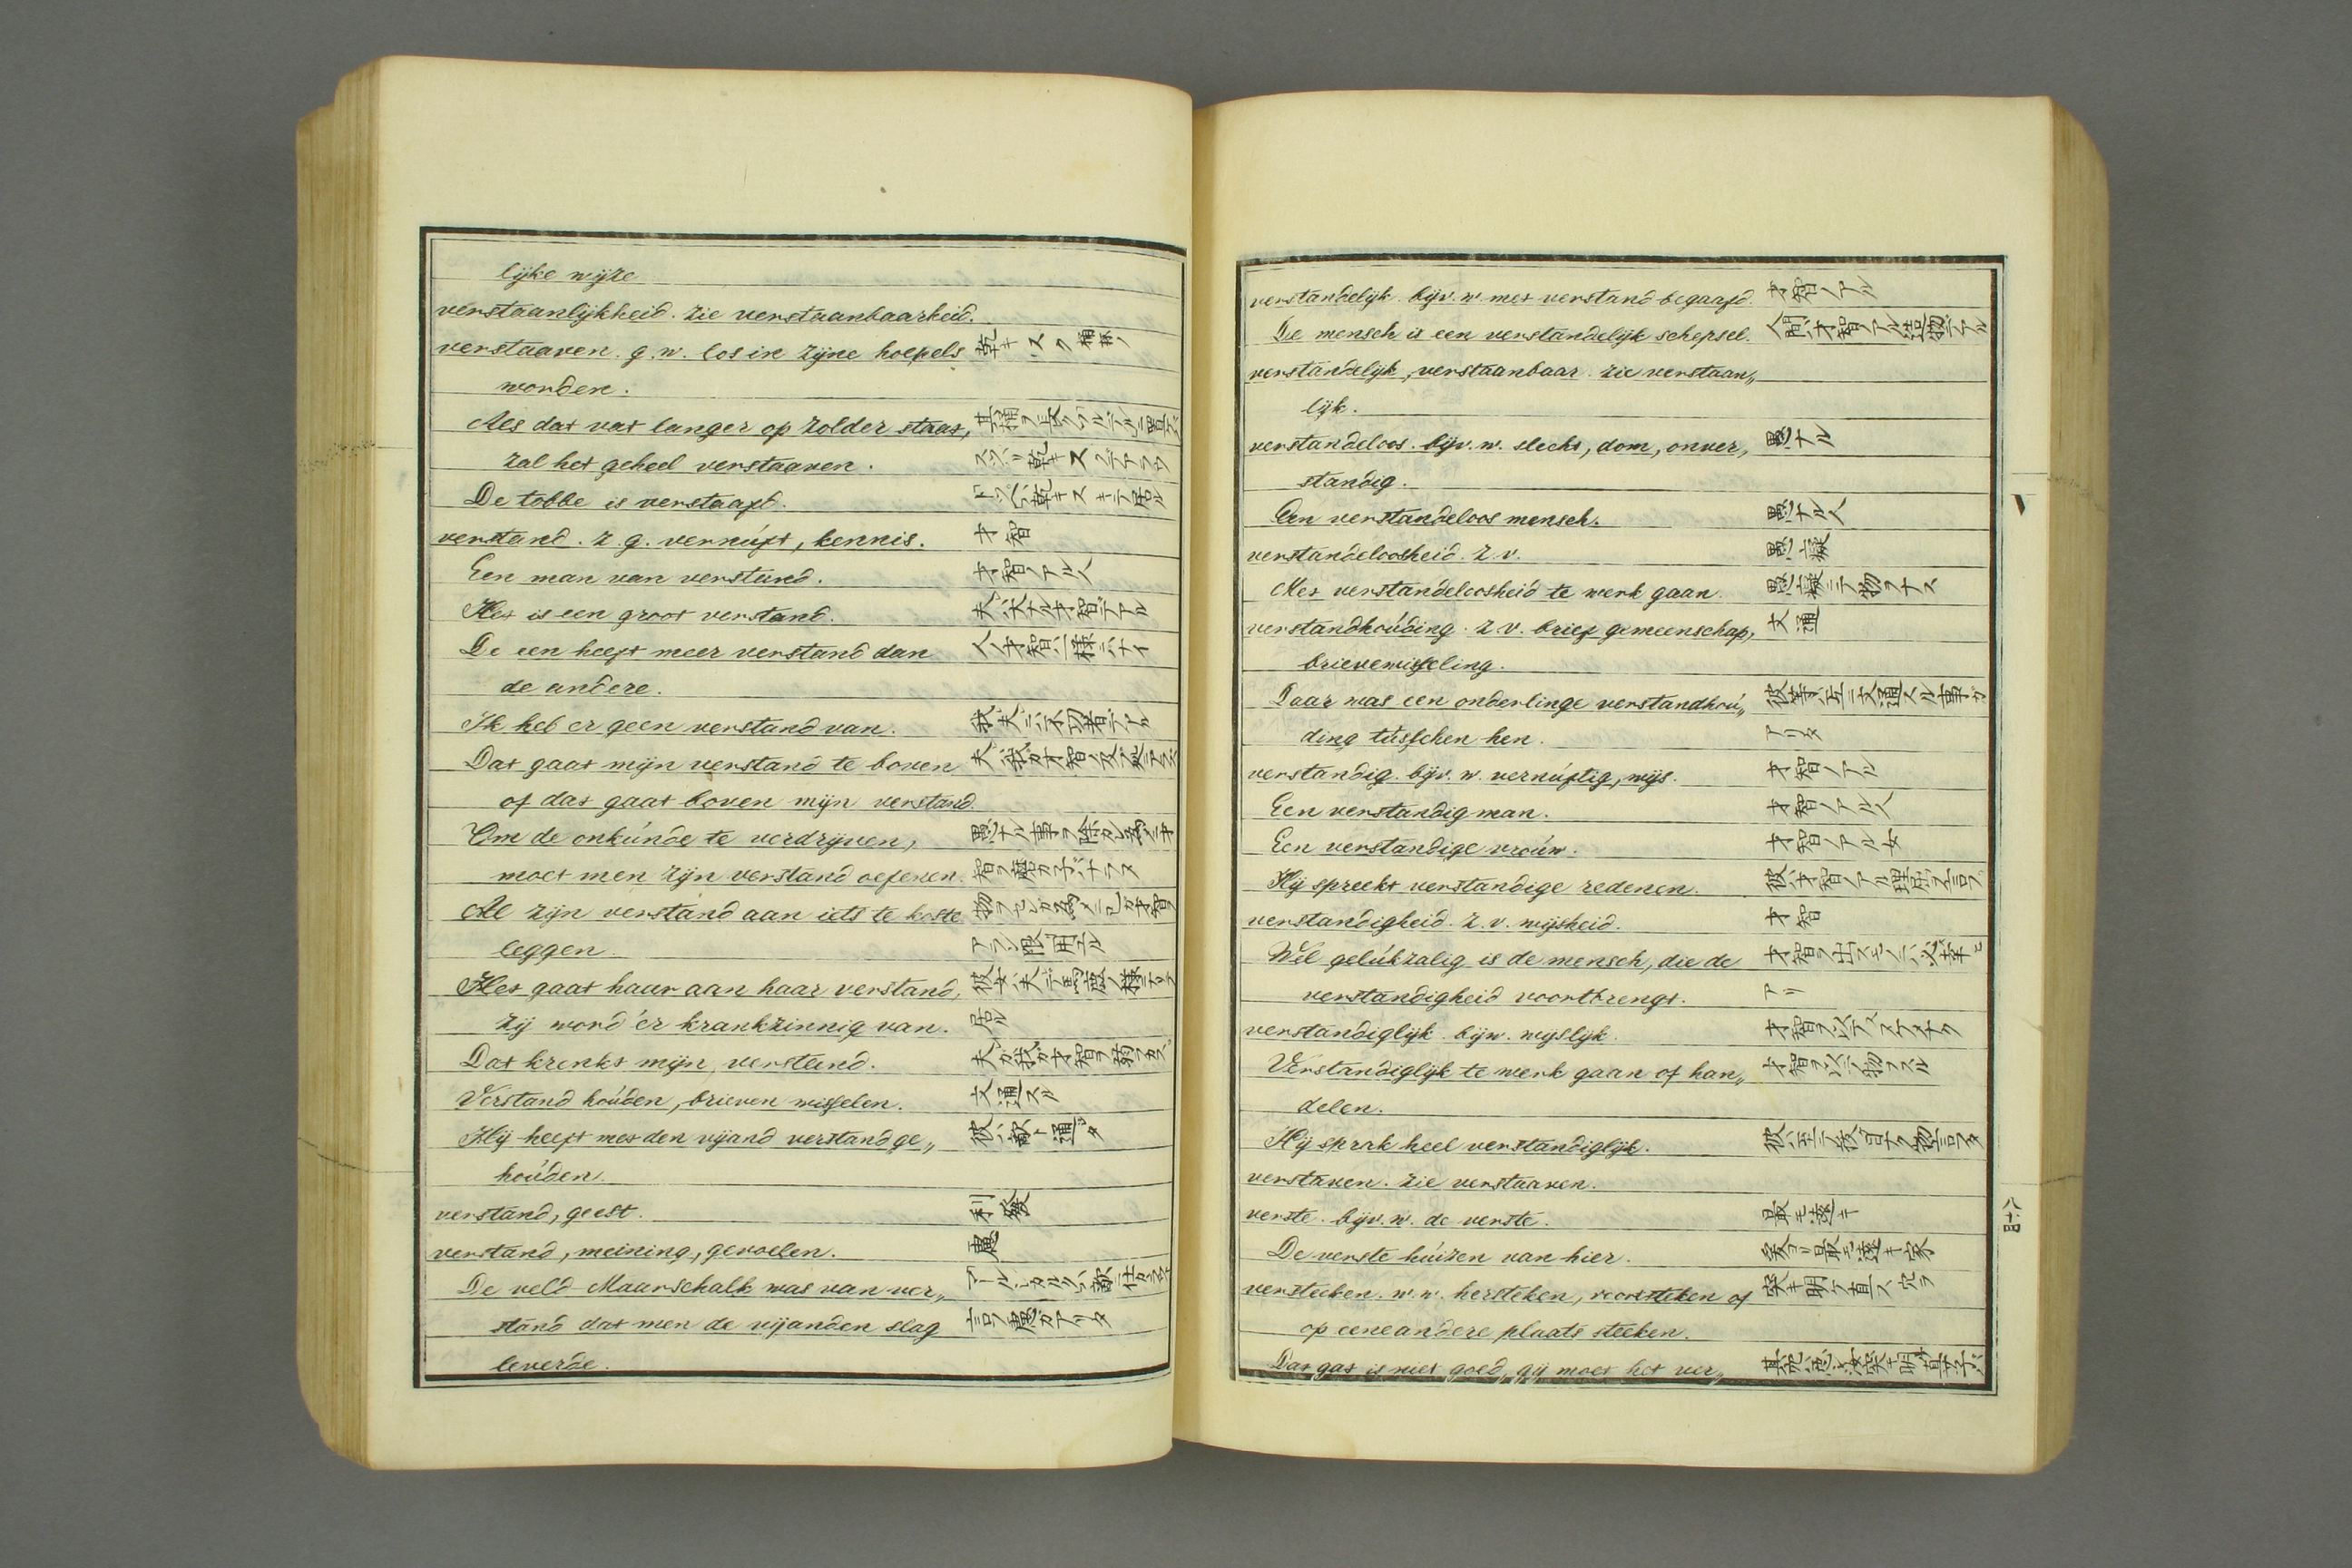 lijke wijze
verstaanlijkheid. zie verstaanbaarheid.
verstaaven. g. w. los in zijne hoepels 乾キスク桶抔ノ
worden.
Als dat vat langer op zolder staat, 其桶ヲ長ク
zal het geheel verstaaven. 乾キス
De tobbe is verstaafd. 乾キスキテ居ル
verstand. z. g. vernúft, kennis. 才智
Een man van verstand. 才智ノアル人
Het is een groot verstand. 夫ハ大ナル才智デアル
De een heeft meer verstand dan 人ノ才智ハ一様ニハナイ
de andere.
Ik heb er geen verstand van. 我ハ夫ニハ不功者デアル
Dat gaat mijn verstand te boven 夫ハ我ガ才智ノ及ブ
of dat gaat boven mijn verstand.
Om de onkúnde te verdrijven, 愚ナル事ヲ除ク為ニハ才
moet men zijn verstand oefenen. 智ヲ磨カ子バナラヌ
Al zijn verstand aan iets te koste 己ガ才智ヲ
leggen. アラン限リ用ユル
Het gaat haar aan haar verstand, 彼女ハ夫デ馬鹿ノ様ニナツテ
zij word ér krankzinnig van. 居ル
Dat krenkt mijn verstand. 夫ガ我ガ才智ヲ弱ラス
Verstand hoúden, brieven wisselen. 文通スル
Hij heeft met den vijand verstand ge„ 彼ハ敵ト通ジタ
hoúden.
verstand, geest. 利發
verstand, meining, gevoelen. 慮
De veld-Maarschalk was van ver„
stand dat men de vijanden slag 慮ガアリタ
leverde.
verstandelijk. bijv. w. met verstand begaafd. 才智ノアル
De mensch is een verstandelijk schepsel. 人間ハ才智ノアル造物デアル
verstandelijk, verstaanbaar. zie verstaan„
lijk.
verstandeloos. bijv. w. slecht, dom, onver„ 愚ナル
standig.
Een verstandeloos mensch. 愚ナル人
verstandeloosheid. z. v. 愚癡
Met verstandeloosheid te werk gaan. 愚癡ニテ物ヲナス
verstandhoúding. z. v. brief gemeenschap, 文通
brievewisseling.
Daar was een onderlinge verstandhoú„ 彼等ハ互ニ文通スル事ガ
ding tússchen hen. アリタ
verstandig. bijv. w. vernúftig, wijs. 才智ノアル
Een verstandig man. 才智ノアル人
Een verstandige vroúw. 才智ノアル女
Hij spreekt verstandige redenen. 彼ハ才智ノアル理屈ヲ言フ
verstandigheid. z. v. wijsheid. 才智
Wel gelúkzalig is de mensch, die de 才智ヲ出スモノニハ必ズ幸ヒ
verstandigheid voortbrengt. アリ
verstandiglijk. bijw. wijslijk. 才智ヲ以テ
Verstandiglijk te werk gaan of han„ 才智ヲ以テ物ヲスル
delen.
Hij sprak heel verstandiglijk. 彼ハ至テ
verstaven. zie verstaaven.
verste. bijv. w. de verste. 最モ遠キ
De verste húizen van hier. 爰ヨリ最モ遠キ家
versteeken. w. w. hersteken, voorsteken of 突キ明ケ直ス穴ヲ
op eene andere plaats steeken.
Dat gat is niet goed, gij moet het ver„ 其穴ハ悪シイ汝突キ明ケ直サ子バ
八十四